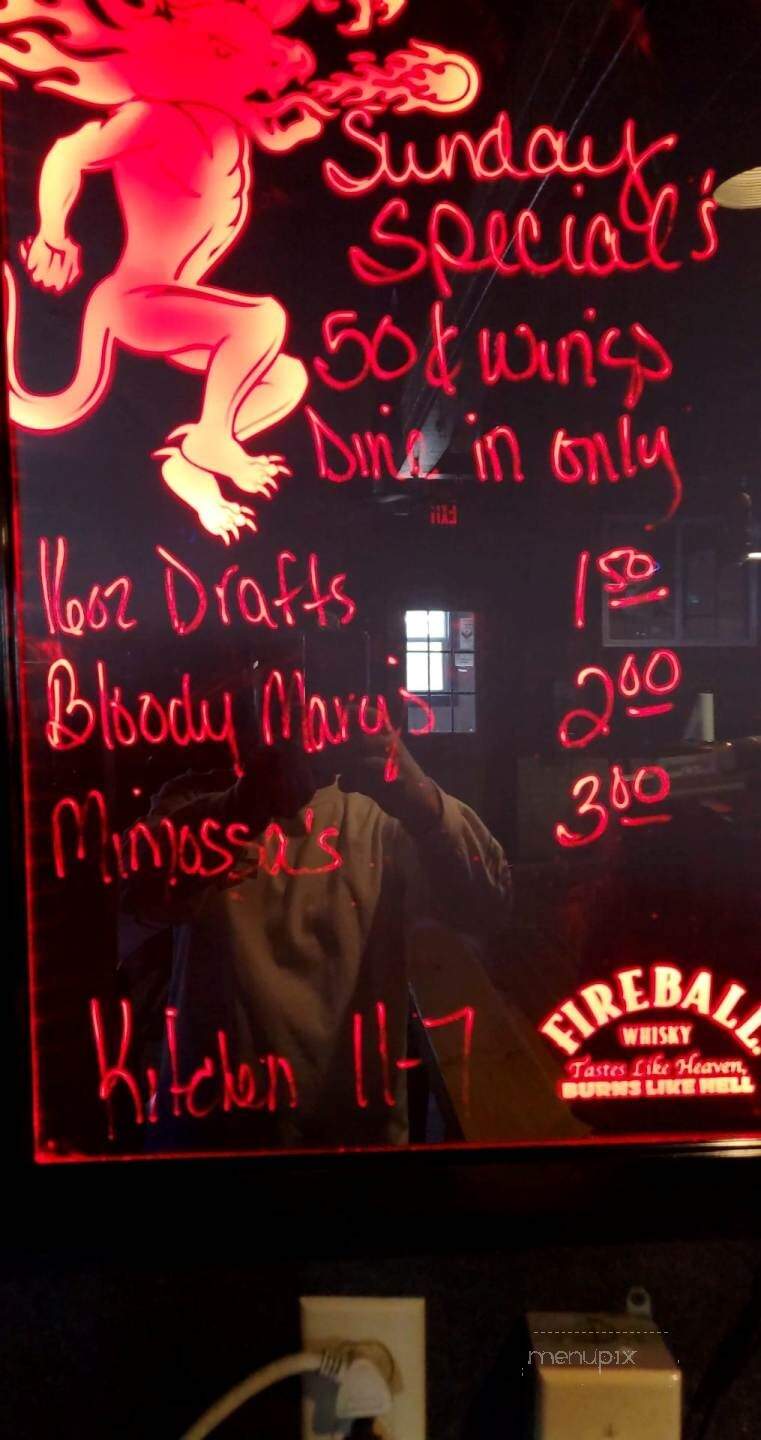 Sunday
Special's
50¢ wings
Dine in only
EXIT
16oz Drafts 1 50
Bloody Mary's 2 00
Mimossa's 3 00
Kitchen 11-7
FIREBALL
WHISKY
Tastes Like Heaven,
BURNS LIKE HELL
menupix